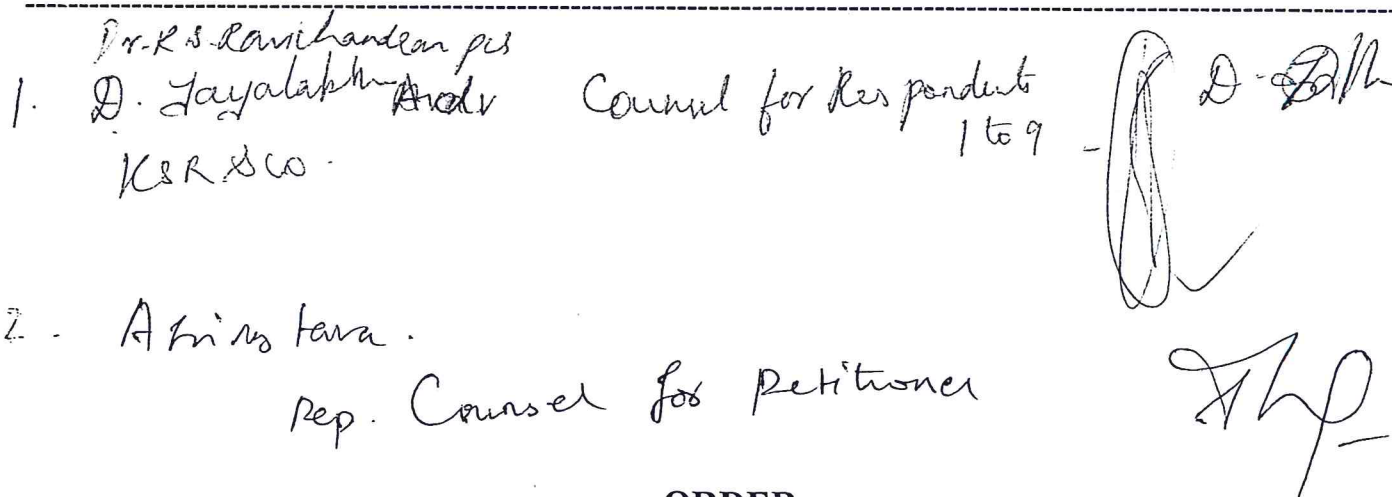 Dr. R S. Ravichandran pcs
1. D. Jayalakshmi Counsel for Respondents
1 to 9
KSR & Co.
2. 
rep. Counsel for Petitioner
ORDER